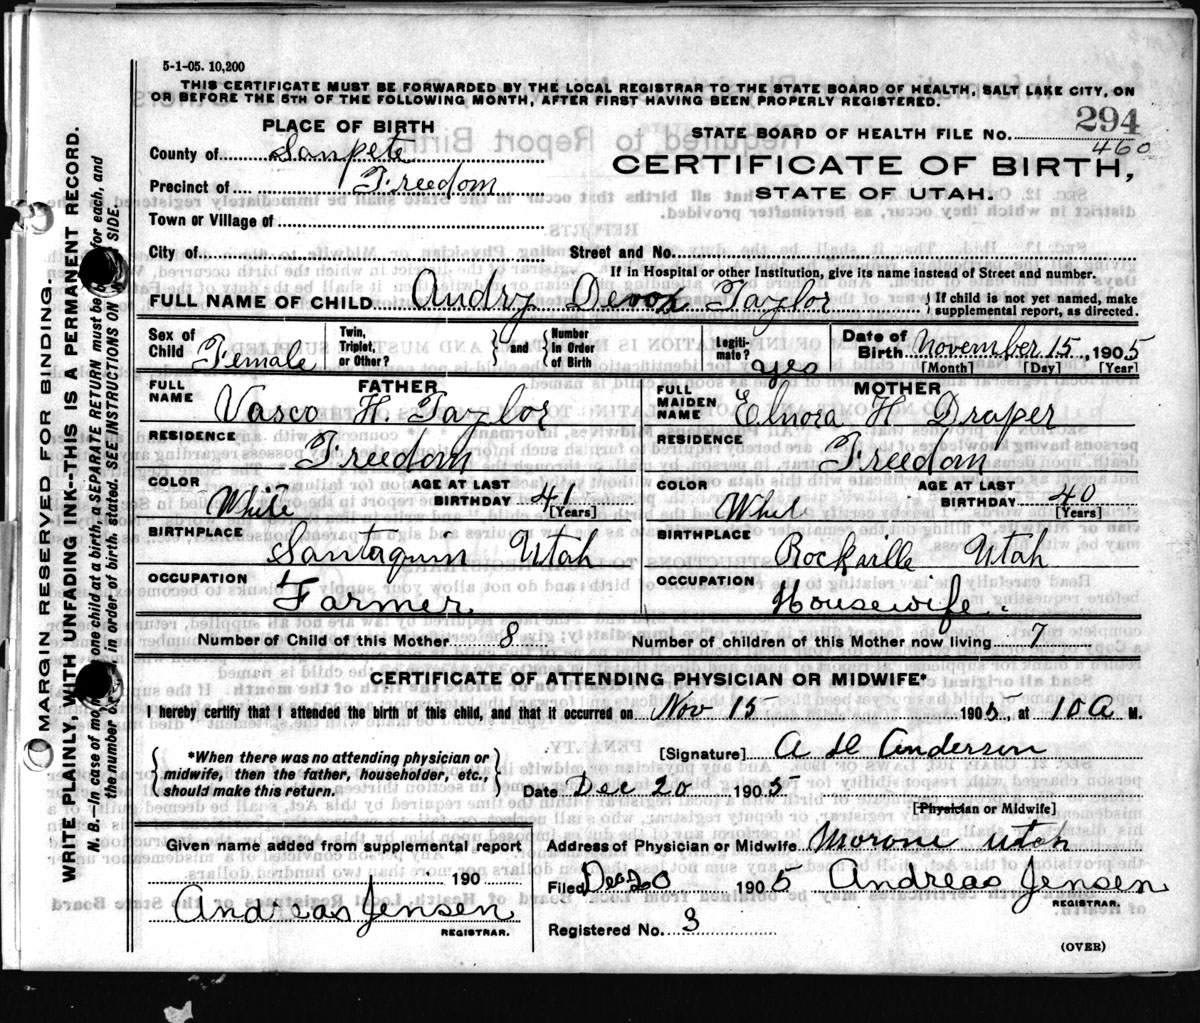 5-1-05. 10,200
THIS CERTIFICATE MUST BE FORWARDED BY THE LOCAL REGISTRAR TO THE STATE BOARD OF HEALTH, SALT LAKE CITY, ON
OR BEFORE THE 5TH OF THE FOLLOWING MONTH, AFTER FIRST HAVING BEEN PROPERLY REGISTERED.
PLACE OF BIRTH
County of Sanpete
Precinct of Freedom
Town or Village of
City of
STATE BOARD OF HEALTH FILE NO. 294
460
CERTIFICATE OF BIRTH,
STATE OF UTAH.
Street and No.
If in Hospital or other Institution, give its name instead of Street and number.
FULL NAME OF CHILD Audry Taylor
{ If child is not yet named, make
supplemental report, as directed.
Sex of Child Female
Twin, Triplet, or Other?
} and {
Number in Order of Birth
Legiti-mate? yes
Date of Birth November 15, 1905
[Month] [Day] [Year]
FATHER
FULL NAME Vasco H. Taylor
RESIDENCE Freedom
COLOR White
AGE AT LAST BIRTHDAY 41
[Years]
BIRTHPLACE Santaquin Utah
OCCUPATION Farmer
MOTHER
FULL MAIDEN NAME Elnora H Draper
RESIDENCE Freedom
COLOR White
AGE AT LAST BIRTHDAY 40
[Years]
BIRTHPLACE Rockville Utah
OCCUPATION Housewife.
Number of Child of this Mother 8
Number of children of this Mother now living 7
CERTIFICATE OF ATTENDING PHYSICIAN OR MIDWIFE*
I hereby certify that I attended the birth of this child, and that it occurred on Nov 15 1905, at 10 A M.
*When there was no attending physician or
midwife, then the father, householder, etc.,
should make this return.
[Signature] Anderson
Date Dec 20 1905
[Physician or Midwife]
Given name added from supplemental report
190
Andreas Jensen
REGISTRAR.
Address of Physician or Midwife Moroni Utah
Filed Dec 20 1905 Andreas Jensen
REGISTRAR.
Registered No. 3
(OVER)
MARGIN RESERVED FOR BINDING.
WRITE PLAINLY, WITH UNFADING INK—THIS IS A PERMANENT RECORD.
N. B.—In case of more one child at a birth, a SEPARATE RETURN must be for each, and
the number in order of birth, stated. SEE INSTRUCTIONS ON SIDE.